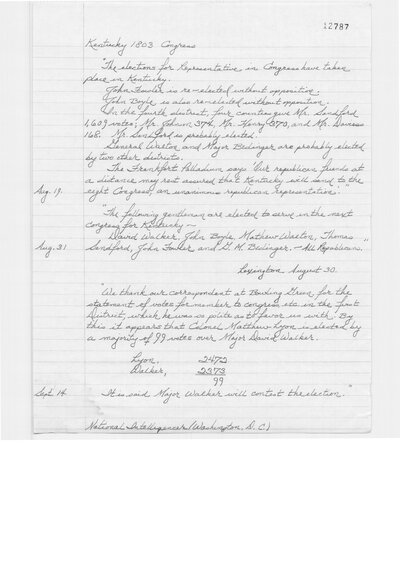 12787
Kentucky 1803 Congress
"The elections for Representative in Congress have taken
place in Kentucky.
John Fowler is re-elected without opposition.
John Boyle is also re-elected without opposition.
In the fourth district, four counties give Mr. Sandford
1609 votes; Mr. Johnson 374, Mr. Henry 370, and Mr. Davess
168. Mr. Sandford is probably elected.
General Walton and Major Bedinger are probably elected
by two other districts.
The Frankfort Palladium says 'Our republican friends at
a distance may rest assured that Kentucky will send to the
Aug. 19. eight Congress, an unanimous republican representation.'"
"The following gentlemen are elected to serve in the next
congress for Kentucky—
David Walker, John Boyle, Mathew Walton, Thomas
Aug. 31 Sandford, John Fowler and G. M. Bedinger.—All Republicans."
Lexington August 30.
"We thank our correspondent at Bowling Green for the
statement of votes for member to congress etc. in the first
District, which he was so polite as to favor us with. By
this it appears that Colonel Matthew Lyon is elected by
a majority of 99 votes over Major David Walker.
Lyon, 2472
Walker, 2373
99
Sept. 14 It is said Major Walker will contest the election."
National Intelligencer (Washington, D.C.)